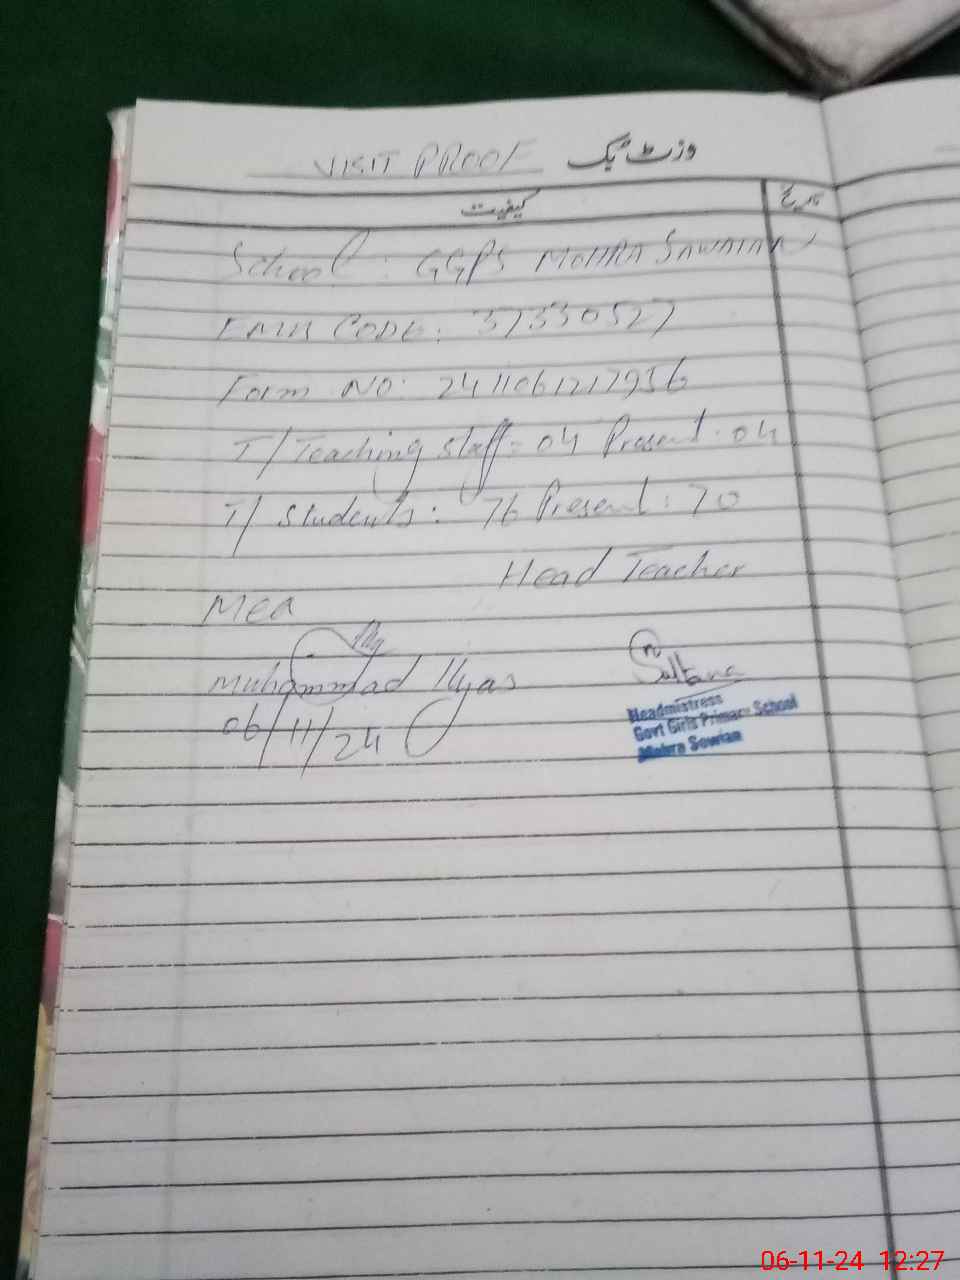 VISIT PROOF وزٹ بک
کیفیت تاریخ
School: GGPS MOHRA SAWAIAN
EMIS CODE: 37330527
Form NO: 2411061217956
T/Teaching Staff = 04 Present: 04
T/Students: 76 Present: 70
Head Teacher
MEA
Muhammad Ilyas
Sultana
06/11/24
Headmistress
Govt Girls Primary School
Mohra Sowian
06-11-24 12:27